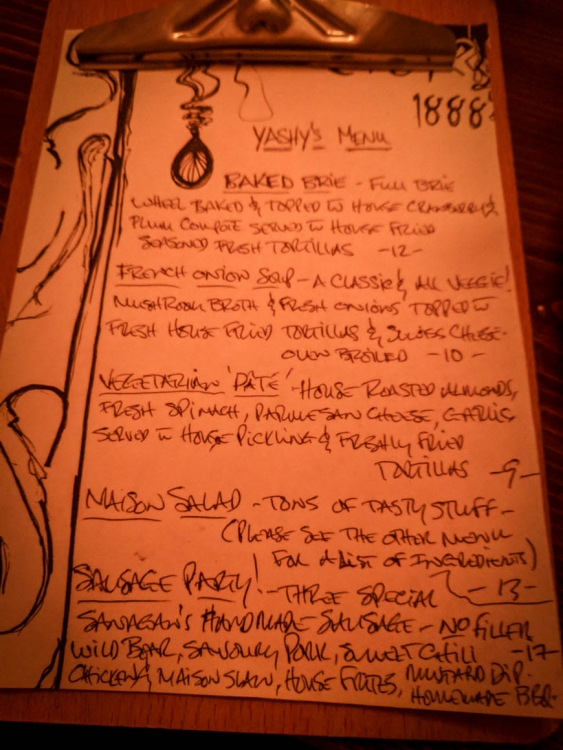 1888
YASHY'S MENU
BAKED BRIE - FULL BRIE
WHEEL BAKED & TOPPED W HOUSE CRANBERRY &
PLUM COMPOTE SERVED W HOUSE FRIED
SEASONED FRESH TORTILLAS -12-
FRENCH ONION SOUP - A CLASSIC & ALL VEGGIE!
MUSHROOM BROTH & FRESH ONIONS TOPPED W
FRESH HOUSE FRIED TORTILLAS & SWISS CHEESE-
OVEN BROILED -10-
VEGETARIAN 'PATE' - HOUSE ROASTED ALMONDS,
FRESH SPINACH, PARMESAN CHEESE, GARLIC
SERVED W HOUSE PICKLING & FRESHLY FRIED
TORTILLAS -9-
MAISON SALAD - TONS OF TASTY STUFF -
(PLEASE SEE THE OTHER MENU
FOR A LIST OF INGREDIENTS)
-13-
SAUSAGE PARTY! - THREE SPECIAL
SANAGAN'S HANDMADE SAUSAGE - NO FILLER
WILD BOAR, SAVOURY PORK, SWEET CHILI -17-
CHICKEN & MAISON SLAW, HOUSE FRITES, MUSTARD DIP.
HOMEMADE BBQ.